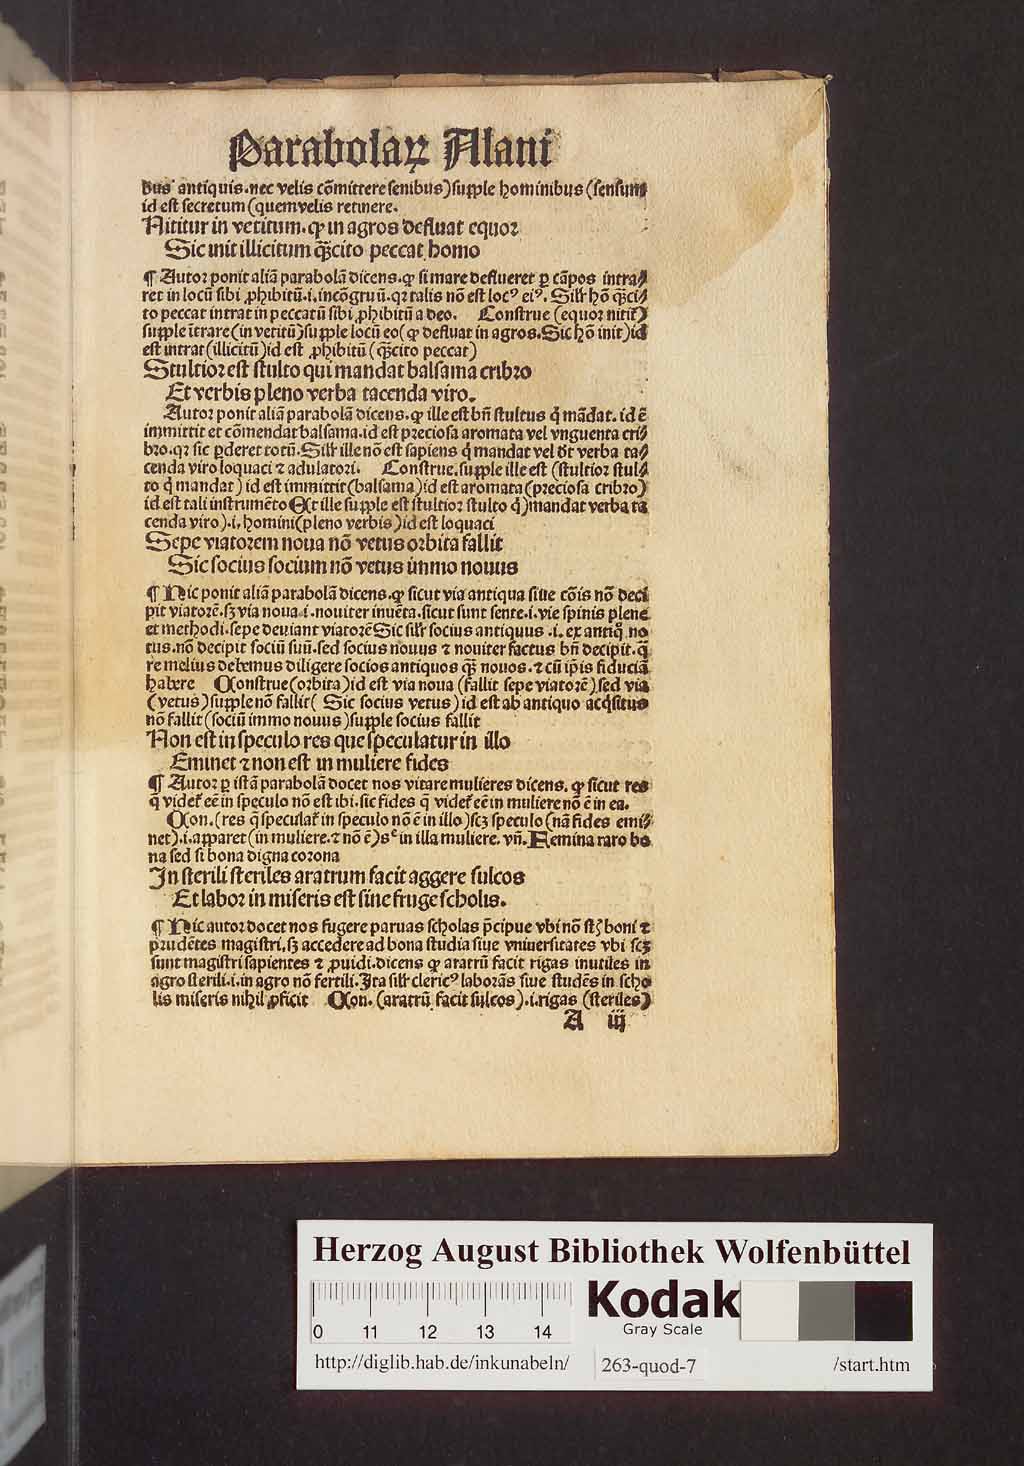 Parabolaꝝ Alani
bus antiquis. nec velis cōmittere senibus) supple hominibus (sensum
id est secretum (quem velis retinere.
Nititur in vetitum. ꝙ in agros defluat equor
Sic init illicitum q̄scito peccat homo
¶ Autor ponit aliā parabolā dicens. ꝙ si mare deflueret ꝑ cāpos intra⸗
ret in locū sibi ꝓhibitū .i. incōgruū. qꝛ talis nō est locꝰ eiꝰ. Silr̄ hō q̄sci⸗
to peccat intrat in peccatū sibi ꝓhibitū a deo. Construe (equor nitit̄)
supple ītrare (in vetitū) supple locū eo (ꝙ defluat in agros. Sic hō init) id
est intrat (illicitū) id est ꝓhibitū (q̄scito peccat)
Stultior est stulto qui mandat balsama cribro
Et verbis pleno verba tacenda viro.
Autor ponit aliā parabolā dicens. ꝙ ille est bn̄ stultus q̄ mādat. id ē
immittit et cōmendat balsama. id est preciosa aromata vel vnguenta cri⸗
bro. qꝛ sic ꝑderet totū. Silr̄ ille nō est sapiens q̄ mandat vel dt̄ verba ta⸗
cenda viro loquaci ⁊ adulatori. Construe. supple ille est (stultior stul⸗
to q̄ mandat) id est immittit (balsama) id est aromata (preciosa cribro)
id est tali instrumēto Et ille supple est stultior stulto q̄) mandat verba ta
cenda viro) .i. homini (pleno verbis) id est loquaci
Sepe viatorem noua nō vetus orbita fallit
Sic socius socium nō vetus immo nouus
¶ Hic ponit aliā parabolā dicens. ꝙ sicut via antiqua siue cōis nō deci
pit viatorē. sꝫ via noua .i. nouiter inuēta. sicut sunt sente .i. vie spinis plene
et methodi. sepe deuiant viatorē Sic silr̄ socius antiquus .i. ex antiq̊ no
tus. nō decipit sociū suū. sed socius nouus ⁊ nouiter factus bn̄ decipit. q̄
re melius debemus diligere socios antiquos q̄ꝫ nouos. ⁊ cū ip̄is fiduciā
habere Construe (orbita) id est via noua (fallit sepe viatorē) sed via
(vetus) supple nō fallit (Sic socius vetus) id est ab antiquo acq̄situs
nō fallit (sociū immo nouus) supple socius fallit
Non est in speculo res que speculatur in illo
Eminet ⁊ non est in muliere fides
¶ Autor ꝑ istā parabolā docet nos vitare mulieres dicens. ꝙ sicut res
q̄ videt̄ eē in speculo nō est ibi. sic fides q̄ videt̄ eē in muliere nō ē in ea.
Con. (res q̄ speculat̄ in speculo nō ē in illo) scꝫ speculo (nā fides emi⸗
net) .i. apparet (in muliere. ⁊ nō ē) sc in illa muliere. vn̄. Femina raro bo
na sed si bona digna corona
In sterili steriles aratrum facit aggere sulcos
Et labor in miseris est sine fruge scholis.
¶ Hic autor docet nos fugere paruas scholas p̄cipue vbi nō sūt boni ⁊
prudētes magistri. sꝫ accedere ad bona studia siue vniuersitates vbi scꝫ
sunt magistri sapientes ⁊ ꝓuidi. dicens ꝙ aratrū facit rigas inutiles in
agro sterili .i. in agro nō fertili. Ita silr̄ clericꝰ laborās siue studēs in scho
lis miseris nihil ꝓficit Con. (aratrū facit sulcos) .i. rigas (steriles)
A iij
Herzog August Bibliothek Wolfenbüttel
Kodak
Gray Scale
0 11 12 13 14
http://diglib.hab.de/inkunabeln/ 263-quod-7 /start.htm